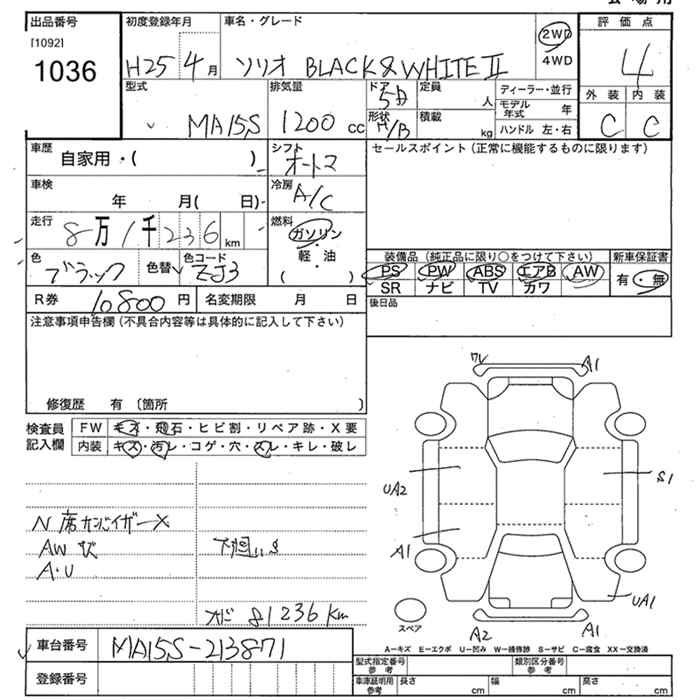 出品番号
[1092]
1036
初度登録年月
H25 4月
車名・グレード
ソリオ BLACK&WHITEⅡ
2WD
4WD
評価点
4
外装 内装
C C
型式
MA15S
排気量
1200 cc
ドア
5D
形状
H/B
定員
人
積載
kg
ディーラー・並行
モデル年式 年
ハンドル 左・右
車歴
自家用・( )
シフト
オートマ
セールスポイント(正常に機能するものに限ります)
車検
年 月( 日)
冷房
A/C
走行
8万1千236km
燃料
ガソリン
・
軽・油
( )
色
ブラック
色替
色コード
ZJ3
装備品(純正品に限り○をつけて下さい)
PS PW ABS エアB AW
SR ナビ TV カワ
新車保証書
有・無
R券 10800円
名変期限 月 日
後日品
注意事項申告欄(不具合内容等は具体的に記入して下さい)
修復歴 有 〔箇所 〕
検査員
記入欄
FW キズ・飛石・ヒビ割・リペア跡・X要
内装 キズ・汚レ・コゲ・穴・スレ・キレ・破レ
N席サンバイザーX
AW
A・U
下廻りS
オド 81236km
W A1
UA2
S1
A1
UA1
スペア
A2
A1
A−キズ E−エクボ U−凹み W−補修跡 S−サビ C−腐食 XX−交換済
車台番号 MA15S-213871
登録番号
型式指定番号
参考
類別区分番号
参考
車庫証明用
参考
長さ cm
幅 cm
高さ cm